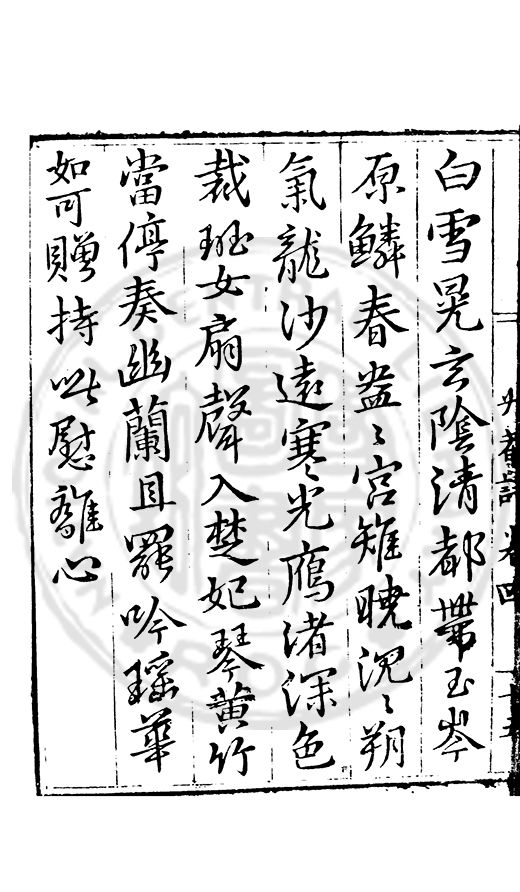 白雪晃玄陰清都帶玉岑
原鱗春盎〻宮雉曉沉〻朔
氣龍沙遠寒光鴈渚深色
裁班女扇聲入楚妃琴黃竹
當停奏幽蘭且罷吟瑤華
如可贈持此慰離心